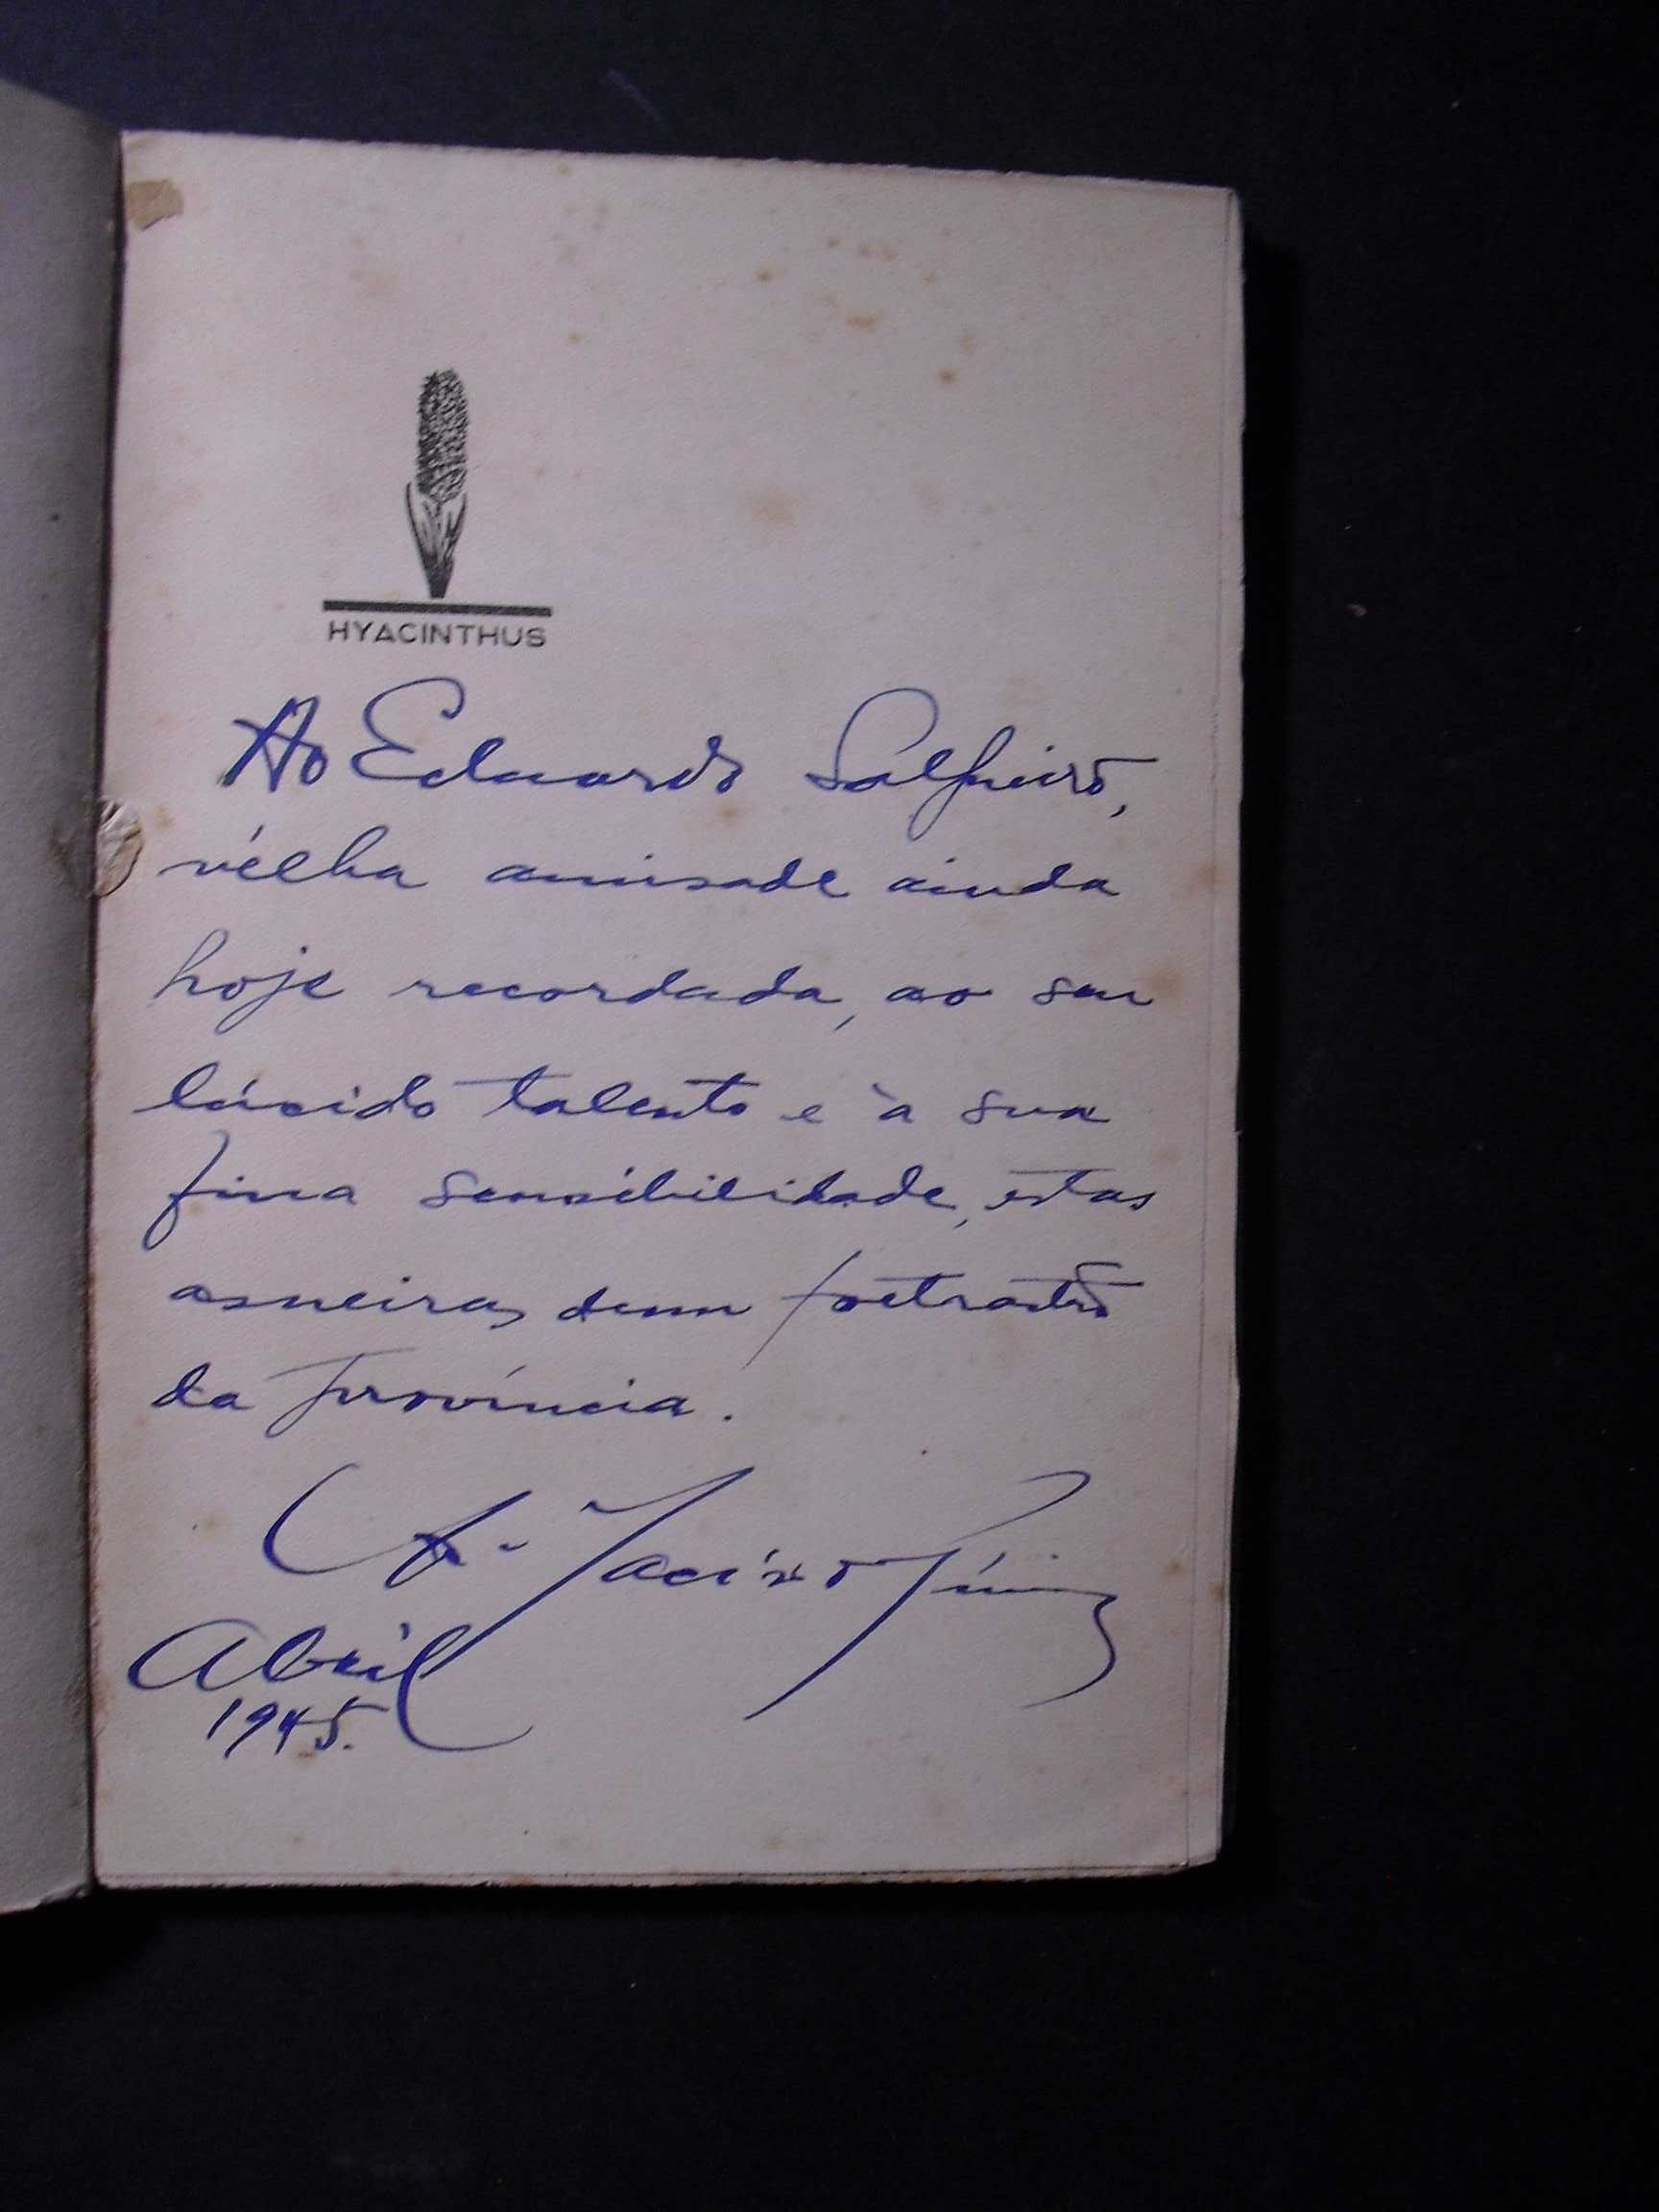 HYACINTHUS
Ao Eduardo Salgueiro,
vélha amisade ainda
hoje recordada, ao seu
lúcido talento e à sua
fina sensibilidade, estas
asneiras dum poetrastro
da província.
A. Jacinto Júnior
Abril
1945.